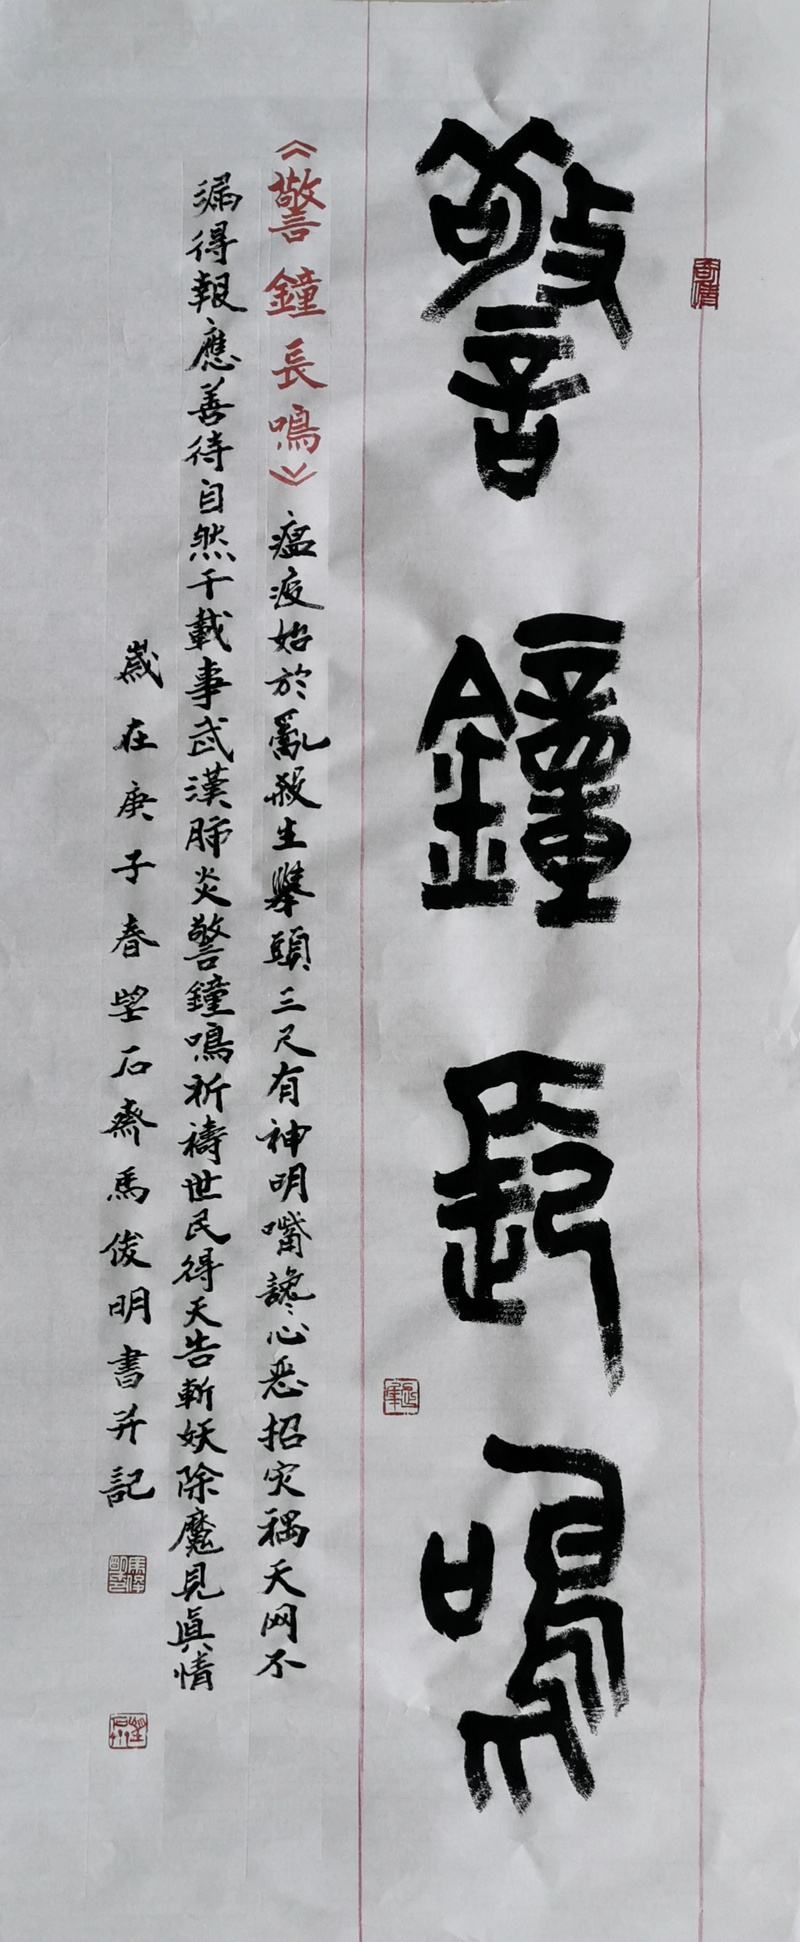 警鐘長鳴
《警鐘長鳴》瘟疫始於亂殺生舉頭三尺有神明嘴讒心惡招灾禍天网不
漏得報應善待自然千載事武漢肺炎警鐘鳴祈禱世民得天告斬妖除魔見眞情
歲在庚子春望石齋馬俊明書并記